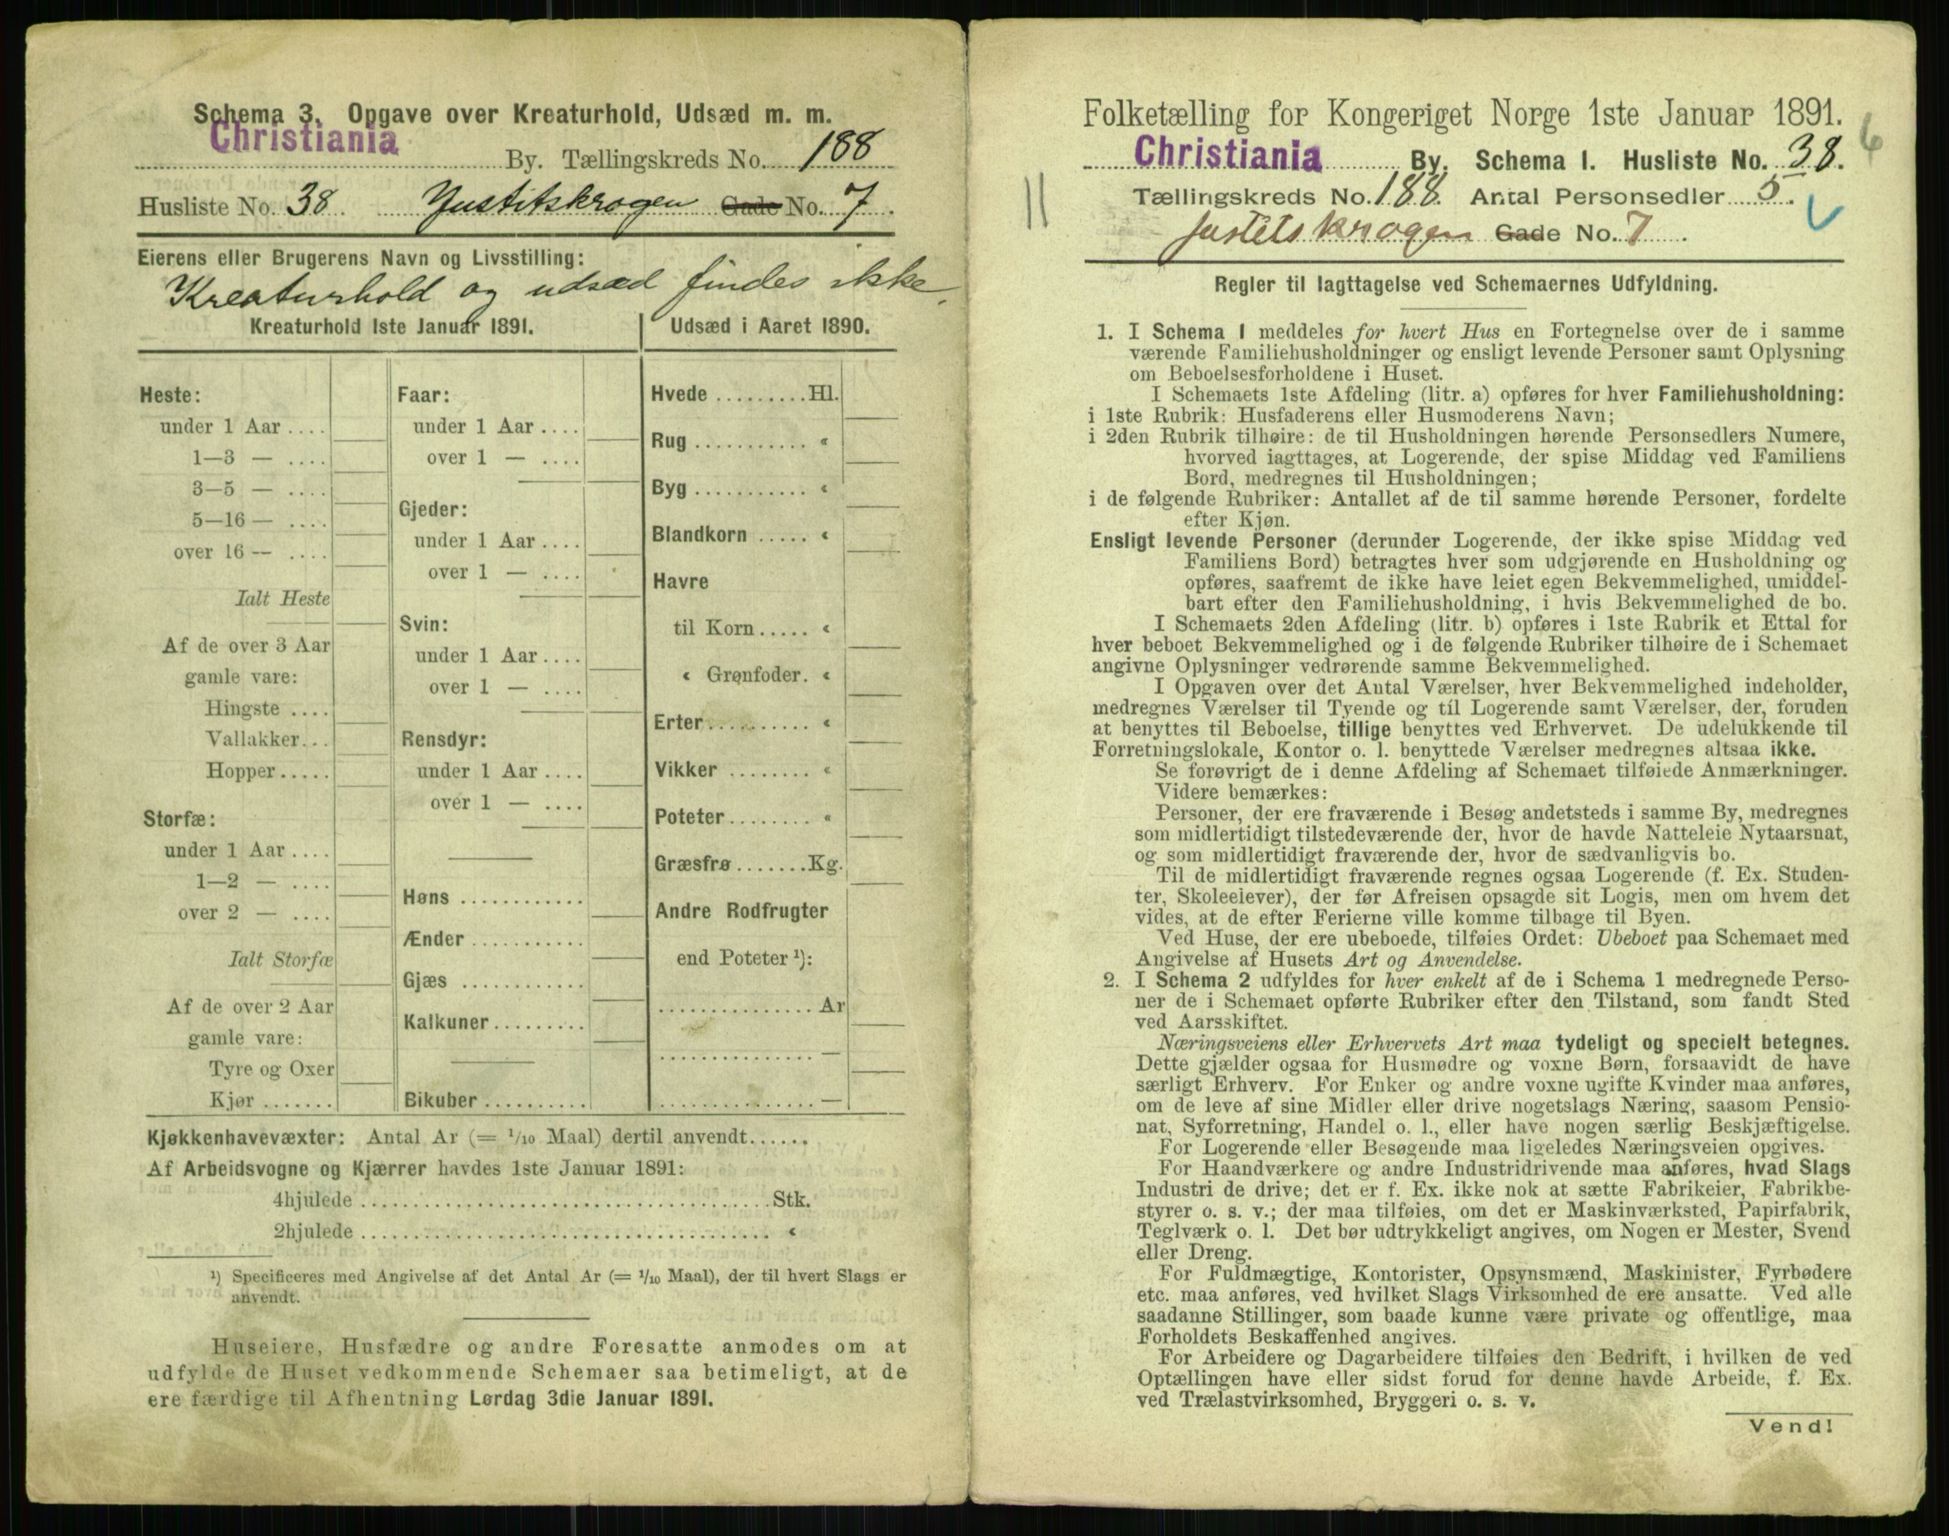 Schema 3. Opgave over Kreaturhold, Udsæd m. m.
Christiania By. Tællingskreds No. 188
Husliste No. 38. Justitskrogen Gade No. 7.
Eierens eller Brugerens Navn og Livsstilling:
Kreaturhold og udsæd findes ikke.
Kreaturhold 1ste Januar 1891.
Udsæd i Aaret 1890.
Heste:
under 1 Aar ....
1—3 — ....
3—5 — ....
5—16 — ....
over 16 — ....
Ialt Heste
Af de over 3 Aar
gamle vare:
Hingste ....
Vallakker...
Hopper.....
Storfæ:
under 1 Aar ....
1—2 — ....
over 2 — ....
Ialt Storfæ
Af de over 2 Aar
gamle vare:
Tyre og Oxer
Kjør .......
Faar:
under 1 Aar ....
over 1 — ....
Gjeder:
under 1 Aar ....
over 1 — ....
Svin:
under 1 Aar ....
over 1 — ....
Rensdyr:
under 1 Aar ....
over 1 — ....
Høns ............
Ænder ...........
Gjæs ............
Kalkuner.........
Bikuber ..........
Hvede .........Hl.
Rug ........... «
Byg ........... «
Blandkorn ..... «
Havre
til Korn..... «
« Grønfoder. «
Erter.......... «
Vikker ........ «
Poteter........ «
Græsfrø .......Kg.
Andre Rodfrugter
end Poteter ¹):
............... Ar
............... —
............... —
Kjøkkenhavevæxter: Antal Ar (= 1/10 Maal) dertil anvendt......
Af Arbeidsvogne og Kjærrer havdes 1ste Januar 1891:
4hjulede ....................................Stk.
2hjulede .................................... «
¹) Specificeres med Angivelse af det Antal Ar (= 1/10 Maal), der til hvert Slags er
anvendt.
Huseiere, Husfædre og andre Foresatte anmodes om at
udfylde de Huset vedkommende Schemaer saa betimeligt, at de
ere færdige til Afhentning Lørdag 3die Januar 1891.
Folketælling for Kongeriget Norge 1ste Januar 1891.
6
Christiania By. Schema 1. Husliste No. 38.
Tællingskreds No. 188. Antal Personsedler 5.
Justitskrogen Gade No. 7.
Regler til Iagttagelse ved Schemaernes Udfyldning.
1. I Schema 1 meddeles for hvert Hus en Fortegnelse over de i samme
værende Familiehusholdninger og ensligt levende Personer samt Oplysning
om Beboelsesforholdene i Huset.
I Schemaets 1ste Afdeling (litr. a) opføres for hver Familiehusholdning:
i 1ste Rubrik: Husfaderens eller Husmoderens Navn;
i 2den Rubrik tilhøire: de til Husholdningen hørende Personsedlers Numere,
hvorved iagttages, at Logerende, der spise Middag ved Familiens
Bord, medregnes til Husholdningen;
i de følgende Rubriker: Antallet af de til samme hørende Personer, fordelte
efter Kjøn.
Ensligt levende Personer (derunder Logerende, der ikke spise Middag ved
Familiens Bord) betragtes hver som udgjørende en Husholdning og
opføres, saafremt de ikke have leiet egen Bekvemmelighed, umiddel-
bart efter den Familiehusholdning, i hvis Bekvemmelighed de bo.
I Schemaets 2den Afdeling (litr. b) opføres i 1ste Rubrik et Ettal for
hver beboet Bekvemmelighed og i de følgende Rubriker tilhøire de i Schemaet
angivne Oplysninger vedrørende samme Bekvemmelighed.
I Opgaven over det Antal Værelser, hver Bekvemmelighed indeholder,
medregnes Værelser til Tyende og til Logerende samt Værelser, der, foruden
at benyttes til Beboelse, tillige benyttes ved Erhvervet. De udelukkende til
Forretningslokale, Kontor o. l. benyttede Værelser medregnes altsaa ikke.
Se forøvrigt de i denne Afdeling af Schemaet tilføiede Anmærkninger.
Videre bemærkes:
Personer, der ere fraværende i Besøg andetsteds i samme By, medregnes
som midlertidigt tilstedeværende der, hvor de havde Natteleie Nytaarsnat,
og som midlertidigt fraværende der, hvor de sædvanligvis bo.
Til de midlertidigt fraværende regnes ogsaa Logerende (f. Ex. Studen-
ter, Skoleelever), der før Afreisen opsagde sit Logis, men om hvem det
vides, at de efter Ferierne ville komme tilbage til Byen.
Ved Huse, der ere ubeboede, tilføies Ordet: Ubeboet paa Schemaet med
Angivelse af Husets Art og Anvendelse.
2. I Schema 2 udfyldes for hver enkelt af de i Schema 1 medregnede Perso-
ner de i Schemaet opførte Rubriker efter den Tilstand, som fandt Sted
ved Aarsskiftet.
Næringsveiens eller Erhvervets Art maa tydeligt og specielt betegnes.
Dette gjælder ogsaa for Husmødre og voxne Børn, forsaavidt de have
særligt Erhverv. For Enker og andre voxne ugifte Kvinder maa anføres,
om de leve af sine Midler eller drive nogetslags Næring, saasom Pensio-
nat, Syforretning, Handel o. l., eller have nogen særlig Beskjæftigelse.
For Logerende eller Besøgende maa ligeledes Næringsveien opgives.
For Haandværkere og andre Industridrivende maa anføres, hvad Slags
Industri de drive; det er f. Ex. ikke nok at sætte Fabrikeier, Fabrikbe-
styrer o. s. v.; der maa tilføies, om det er Maskinværksted, Papirfabrik,
Teglværk o. l. Det bør udtrykkeligt angives, om Nogen er Mester, Svend
eller Dreng.
For Fuldmægtige, Kontorister, Opsynsmænd, Maskinister, Fyrbødere
etc. maa anføres, ved hvilket Slags Virksomhed de ere ansatte. Ved alle
saadanne Stillinger, som baade kunne være private og offentlige, maa
Forholdets Beskaffenhed angives.
For Arbeidere og Dagarbeidere tilføies den Bedrift, i hvilken de ved
Optællingen have eller sidst forud for denne havde Arbeide, f. Ex.
ved Trælastvirksomhed, Bryggeri o. s. v.
Vend!